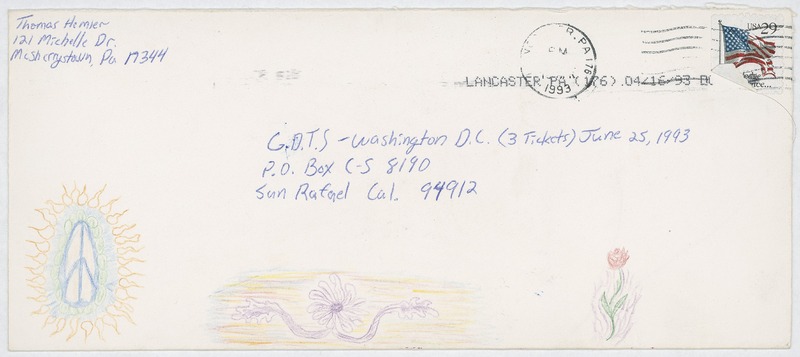 Thomas Hemler
121 Michelle Dr.
McSherrystown, Pa 17344
USA 29
PA 176
PM
1993
LANCASTER PA (176) 04/16/93
G.D.T.S - Washington D.C. (3 Tickets) June 25, 1993
P.O. Box C-S 8190
San Rafael Cal. 94912